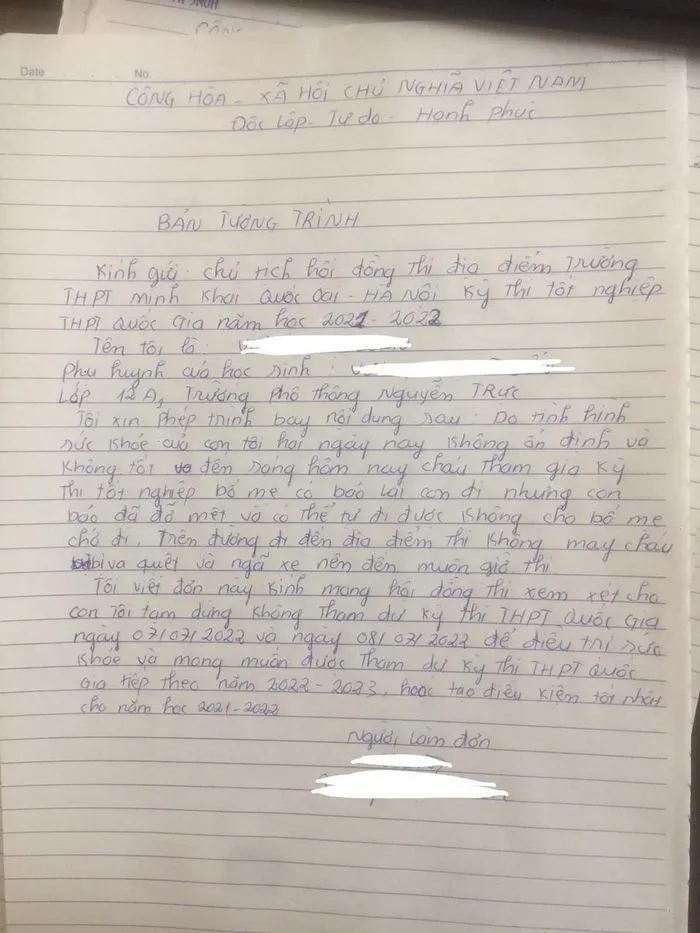 Date
No.
CỘNG HÒA - XÃ HỘI CHỦ NGHĨA VIỆT NAM
Độc Lập - Tự do - Hạnh phúc
BẢN TƯỜNG TRÌNH
Kính gửi: chủ tịch hội đồng thi địa điểm Trường
THPT minh Khai Quốc Oai - HÀ Nội Kỳ thi tốt nghiệp
THPT Quốc Gia năm học 2021-2022
Tên tôi là:
phụ huynh của học sinh:
Lớp 12A, Trường Phổ thông Nguyễn Trực
Tôi xin phép trình bày nội dung sau: Do tình hình
sức khỏe của con tôi hai ngày nay không ổn định và
không tốt đến sáng hôm nay cháu tham gia kỳ
thi tốt nghiệp bố mẹ có bảo lai con đi nhưng con
bảo đã đỡ mệt và có thể tự đi được không cho bố mẹ
chở đi, Trên đường đi đến địa điểm thi không may cháu
bị va quệt và ngã xe nên đến muộn giờ thi
Tôi viết đơn này kính mong hội đồng thi xem xét cho
con Tôi tạm dừng không tham dự kỳ thi THPT Quốc Gia
ngày 07/07/2022 và ngày 08/07/2022 để điều trị sức
khỏe và mong muốn được tham dự kỳ thi THPT Quốc
Gia tiếp theo năm 2022-2023, hoặc tạo điều kiện tốt nhất
cho năm học 2021-2022
Người làm đơn